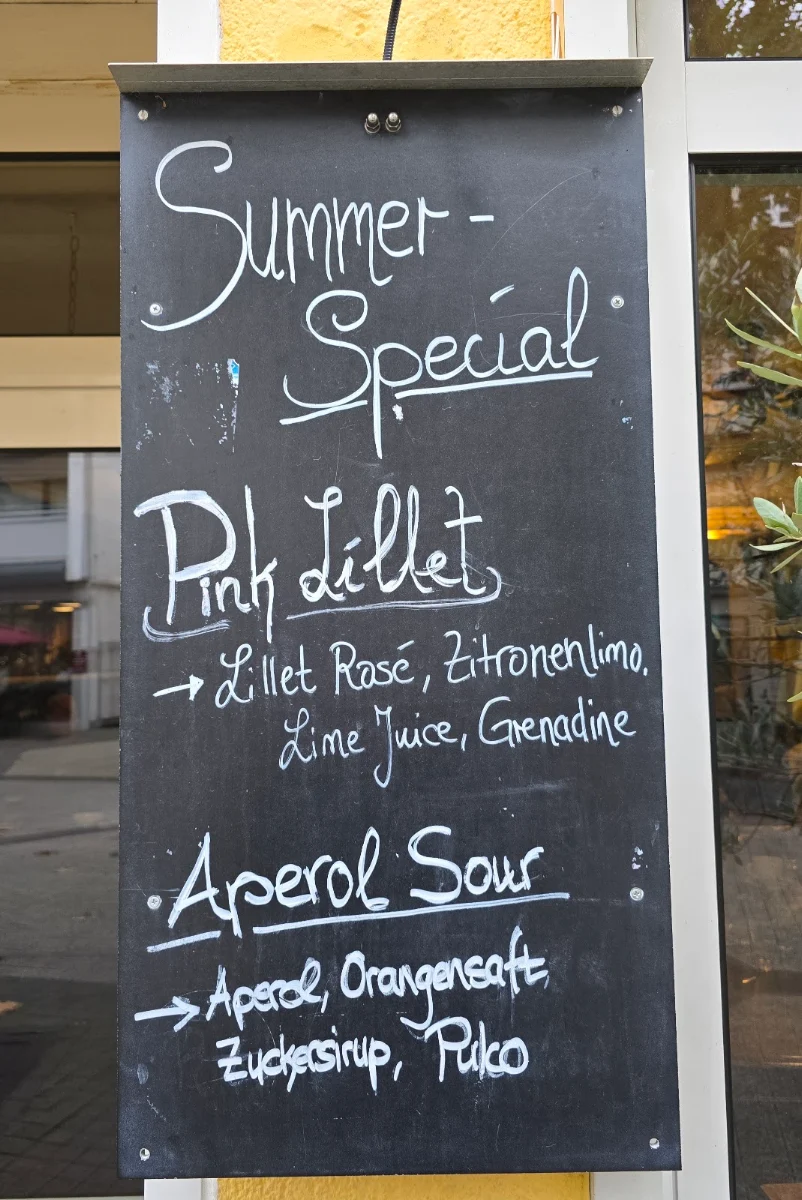 Summer-
Special
Pink Lillet
→ Lillet Rosé, Zitronenlimo.
Lime Juice, Grenadine
Aperol Sour
→ Aperol, Orangensaft,
Zuckersirup, Pulco